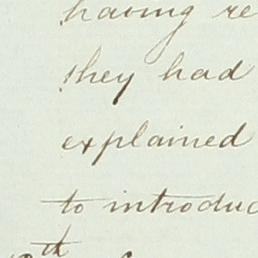 having re
they had
explained
to introduc
th